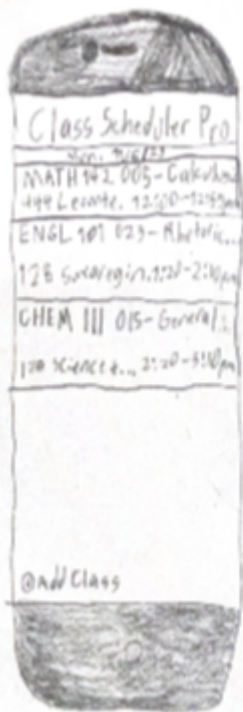 Class Scheduler Pro
MATH 142 005-Calculus
444 Leconte. 12:00-12:50pm
ENGL 101 023-Rhetoric...
128 2:10pm
CHEM 111 015-General
120 Science &... 2:20-5:10pm
@add Class